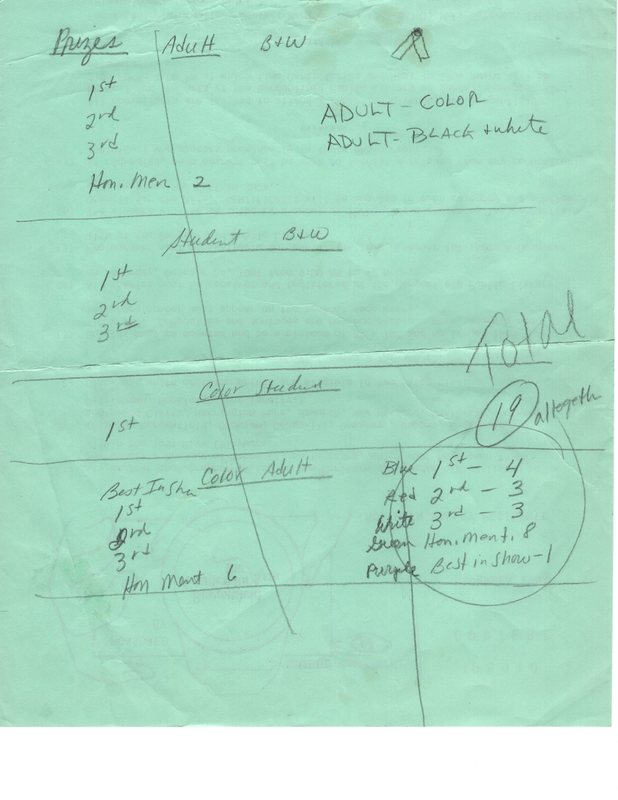 Prizes Adult B+W
1st
2nd
3rd
Hon. Men 2
ADULT - COLOR
ADULT - BLACK + white
Student B+W
1st
2nd
3rd
Total
19 altogeth
Color Student
1st
Color Adult
Best In Sho
1st
2nd
3rd
Hon Ment 6
Blue 1st - 4
Red 2nd - 3
White 3rd - 3
Green Hon. Ment. 8
Purple Best in Show - 1